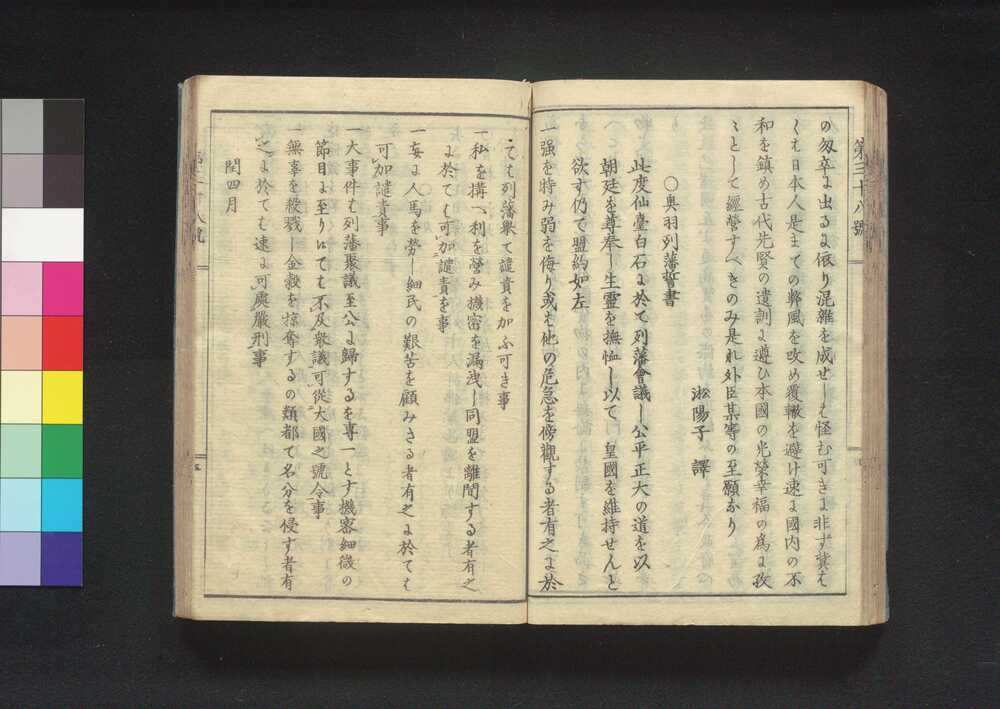 第三十八號
の匆卒に出るに依り混雜を成せしも怪む可きに非ず冀は
くは日本人是までの弊風を改め覆轍を避け速に國内の不
和を鎮め古代先賢の遺訓に遵ひ本國の光榮幸福の為に孜
ゝとして經營すべきのみ是れ外臣某等の至願なり
淞陽子 譯
○奥羽列藩誓書
此度仙臺白石に於て列藩會議し公平正大の道を以
朝廷を尊奉し生靈を撫恤し以て 皇國を維持せんと
欲す仍て盟約如左
一强を恃み弱を侮り或は他の危急を傍觀する者有之に於
ては列藩衆て譴責を加ふ可き事
一私を搆へ利を營み機密を漏洩し同盟を離間する者有之
に於ては可加譴責を事
一妄に人馬を勞し細民の艱苦を顧みさる者有之に於ては
可加譴責事
一大事件は列藩衆議至公に歸するを專一とす機密細微の
節目に至りはても不及衆議可從大國之號令事
一無辜を殺戮し金穀を掠奪するの類都て名分を侵す者有
之に於ても速に可處嚴刑事
閏四月